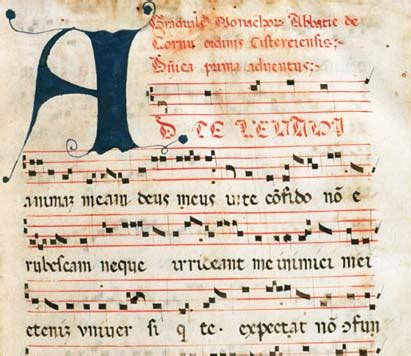 Graduale Monachor Abbatie de
Cornu ordinis Cisterciensis;
Dñica prima adventus;
AD TE LEVAVI
animaz meam deus meus in te cõfido nõ e
rubescam neque irrideant me inimici mei
eteniz univer si q te expectat nõ ↄfun